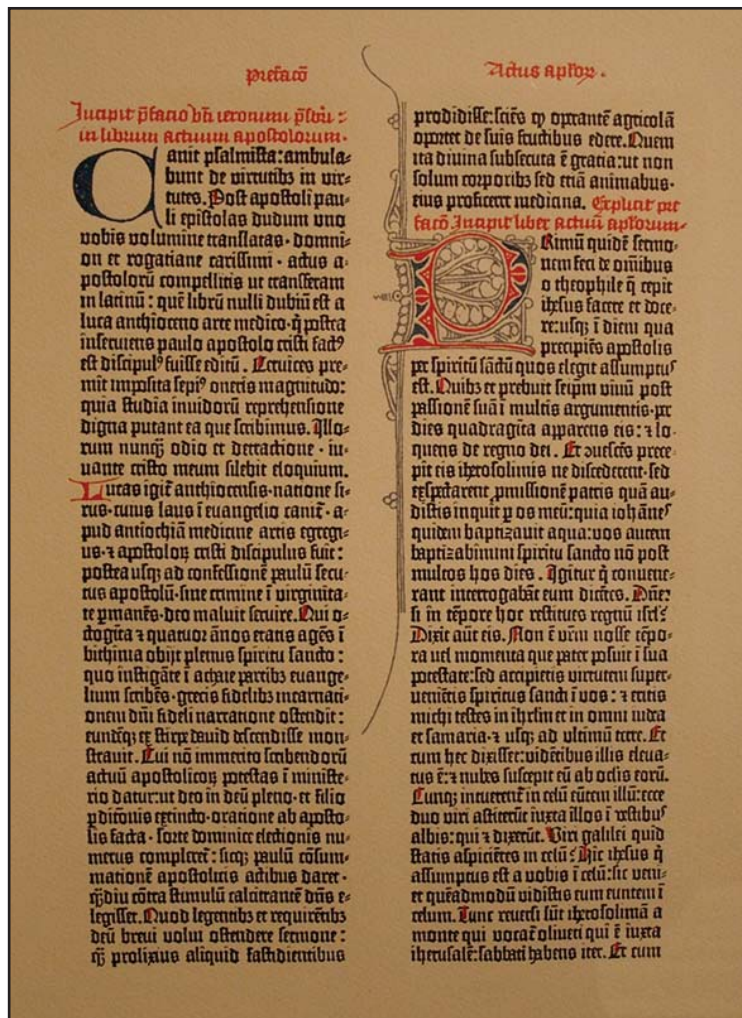 Prefacō
Actus aplor̄.
Incipit p̄facio bt̄i ieronimi p̄sbr̄i :
in librum actuum apostolorum.
Canit psalmista: ambula-
bunt de virtutibꝫ in vir-
tutes. Post apostoli pau-
li epistolas dudum uno
vobis volumine translatas. domni-
on et rogatiane carissimi. actus a-
postolorū compellitis ut transferam
in latinū : quē librū nulli dubiū est a
luca anthioceno arte medico. q̄ postea
inserviens paulo apostolo cristi factꝰ
est discipulꝰ fuisse editū. Cervices pre-
mit imposita sepiꝰ oneris magnitudo:
quia studia invidorū reprehensione
digna putant ea que scribimus. Illo-
rum nunq̄ odio et detractione. iu-
vante cristo meum silebit eloquium.
Lucas igit̄ anthiocensis. natione si-
rus. cuius laus ī euangelio canit̄. a-
pud antiochiā medicine artis egregi-
us. ⁊ apostoloꝝ cristi discipulus fuit:
postea usqꝫ ad confessionē paulū secu-
tus apostolū. sine crimine ī virginita-
te p̱manēs. deo maluit servire. Qui o-
ctogīta ⁊ quatuor ānos etatis agēs ī
bithinia obijt plenus spiritu sancto :
quo instigāte ī achaie partibꝫ euange-
lium scribēs. grecis fidelibꝫ incarnati-
onem dn̄i fideli narratione ostendit :
eundēqꝫ ex stirpe david descendisse mon-
stravit. Cui nō immerito scribendorū
actuū apostolicoꝝ potestas ī ministe-
rio datur: ut deo in deū pleno. et filio
p̱ditionis extincto. oratione ab aposto-
lis facta. sorte dominice electionis nu-
merus compleret̄ : sicqꝫ paulū cōsum-
mationē apostolicis actibus daret.
q̄ꝫdiu cōtra stimulū calcitrantē dn̄s e-
legisset. Quod legentibꝫ et requirētibꝫ
deū brevi volui ostendere sermone :
q̄ꝫ prolixius aliquid fastidientibus
prodidisse: sciēs ꝙ operantē agricolā
oportet de suis fructibus edere. Quem
ita divina subsecuta ē gratia: ut non
solum corporibꝫ sed etiā animabus.
eius proficeret medicina. Explicit pre
facō. Incipit liber actuū aplorum.
Primū quidē sermo-
nem feci de om̄ibus
o theophile q̄ cepit
ihesus facere et doce-
re: usqꝫ ī diem qua
precipiēs apostolis
per spiritū sāctū quos elegit assumptuꝰ
est. Quibꝫ et prebuit seip̄m vivū post
passionē suā ī multis argumentis. per
dies quadragīta apparens eis: ⁊ lo-
quens de regno dei. Et cōvescēs prece-
pit eis iherosolimis ne discederent. sed
exspectarent p̱missionē patris quā au-
distis inquit p̱ os meū: quia iohānes
quidem baptizavit aqua: vos autem
baptizabimini spiritu sancto nō post
multos hos dies. Igitur q̄ convene-
rant interrogabāt eum dicētes. Dn̄e
si in tēpore hoc restitues regnū isrl̄?
Dixit aūt eis. Non ē vr̄m nosse tēpo-
ra vel momenta que pater posuit ī sua
potestate: sed accipietis virtutem super-
venietis spiritus sancti ī vos: ⁊ eritis
michi testes in ihrlm̄ et in omni iudea
et samaria. ⁊ usqꝫ ad ultimū terre. Et
cum hec dixisset: vidētibus illis eleva-
tus ē: ⁊ nubes suscepit eū ab oclis eorū.
Cunqꝫ intuerent̄ in celū eūtem illū: ecce
duo viri astiterūt iuxta illos ī vestibuꝰ
albis: qui ⁊ dixerūt. Viri galilei quid
statis aspiciētes in celū? Hic ihesus q̄
assumptus est a vobis ī celū: sic veni-
et quēadmodū vidistis eum euntem ī
celum. Tunc reversi sūt iherosolimā a
monte qui vocat̄ oliveti qui ē iuxta
iherusalē: sabbati habens iter. Et cum